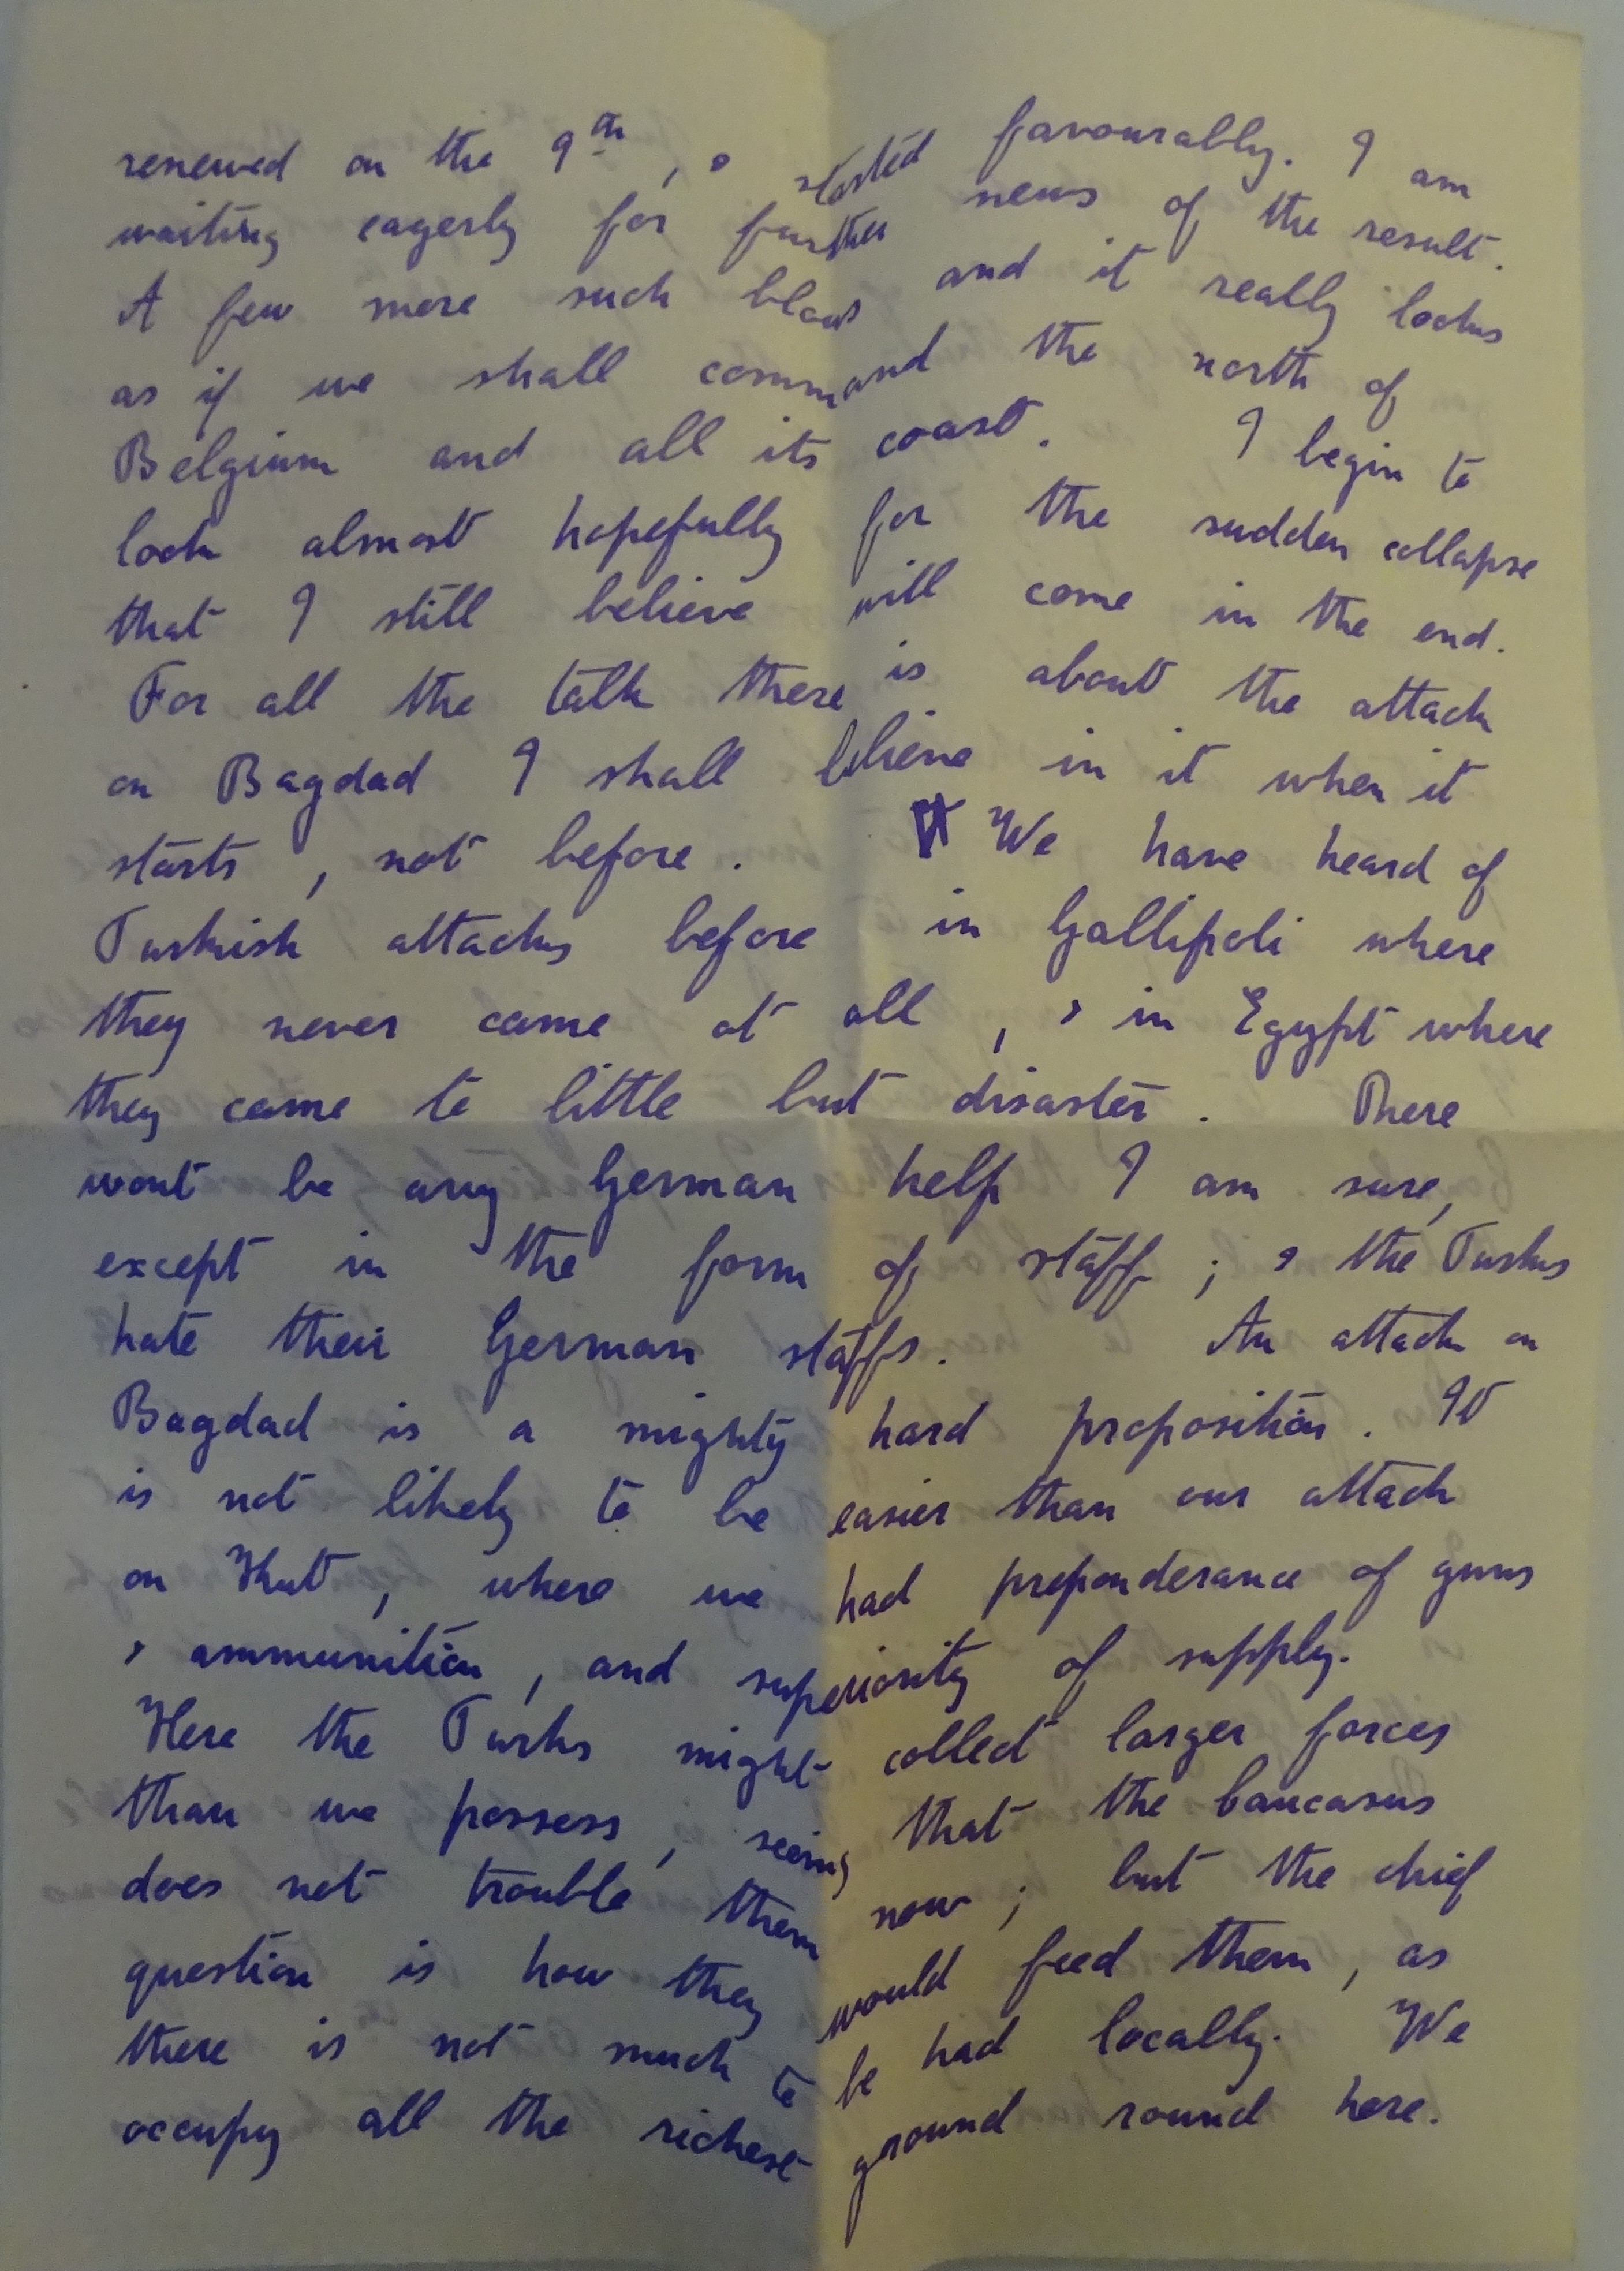 renewed on the 9th, & started favourably. I am
waiting eagerly for further news of the result.
A few more such blows and it really looks
as if we shall command the north of
Belgium and all its coast. I begin to
look almost hopefully for the sudden collapse
that I still believe will come in the end.
For all the talk there is about the attack
on Bagdad I shall believe in it when it
starts, not before. We have heard of
Turkish attacks before in Gallipoli where
they never came at all, & in Egypt where
they came to little but disaster. There
wont be any German help I am sure,
except in the form of staff; & the Turks
hate their German staffs. An attack on
Bagdad is a mighty hard proposition. It
is not likely to be easier than our attack
on Kut, where we had preponderance of guns
& ammunition, and superiority of supply.
Here the Turks might collect larger forces
than we possess, seeing that the Caucasus
does not trouble them now; but the chief
question is how they would feed them, as
there is not much to be had locally. We
occupy all the richest ground round here.